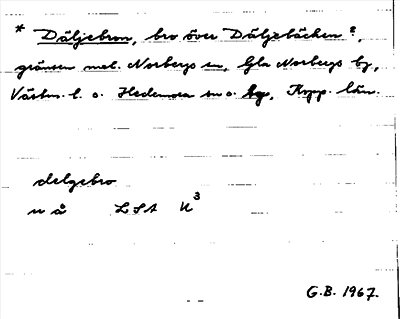 * Däljebron, bro över Däljebäcken?,
gränsen mel. Norbergs sn, Gla Norbergs bg,
Västm. l. o. Hedemora sn o. bg, Kopp. län.
delgebro
n å LSA K³
G.B. 1967.